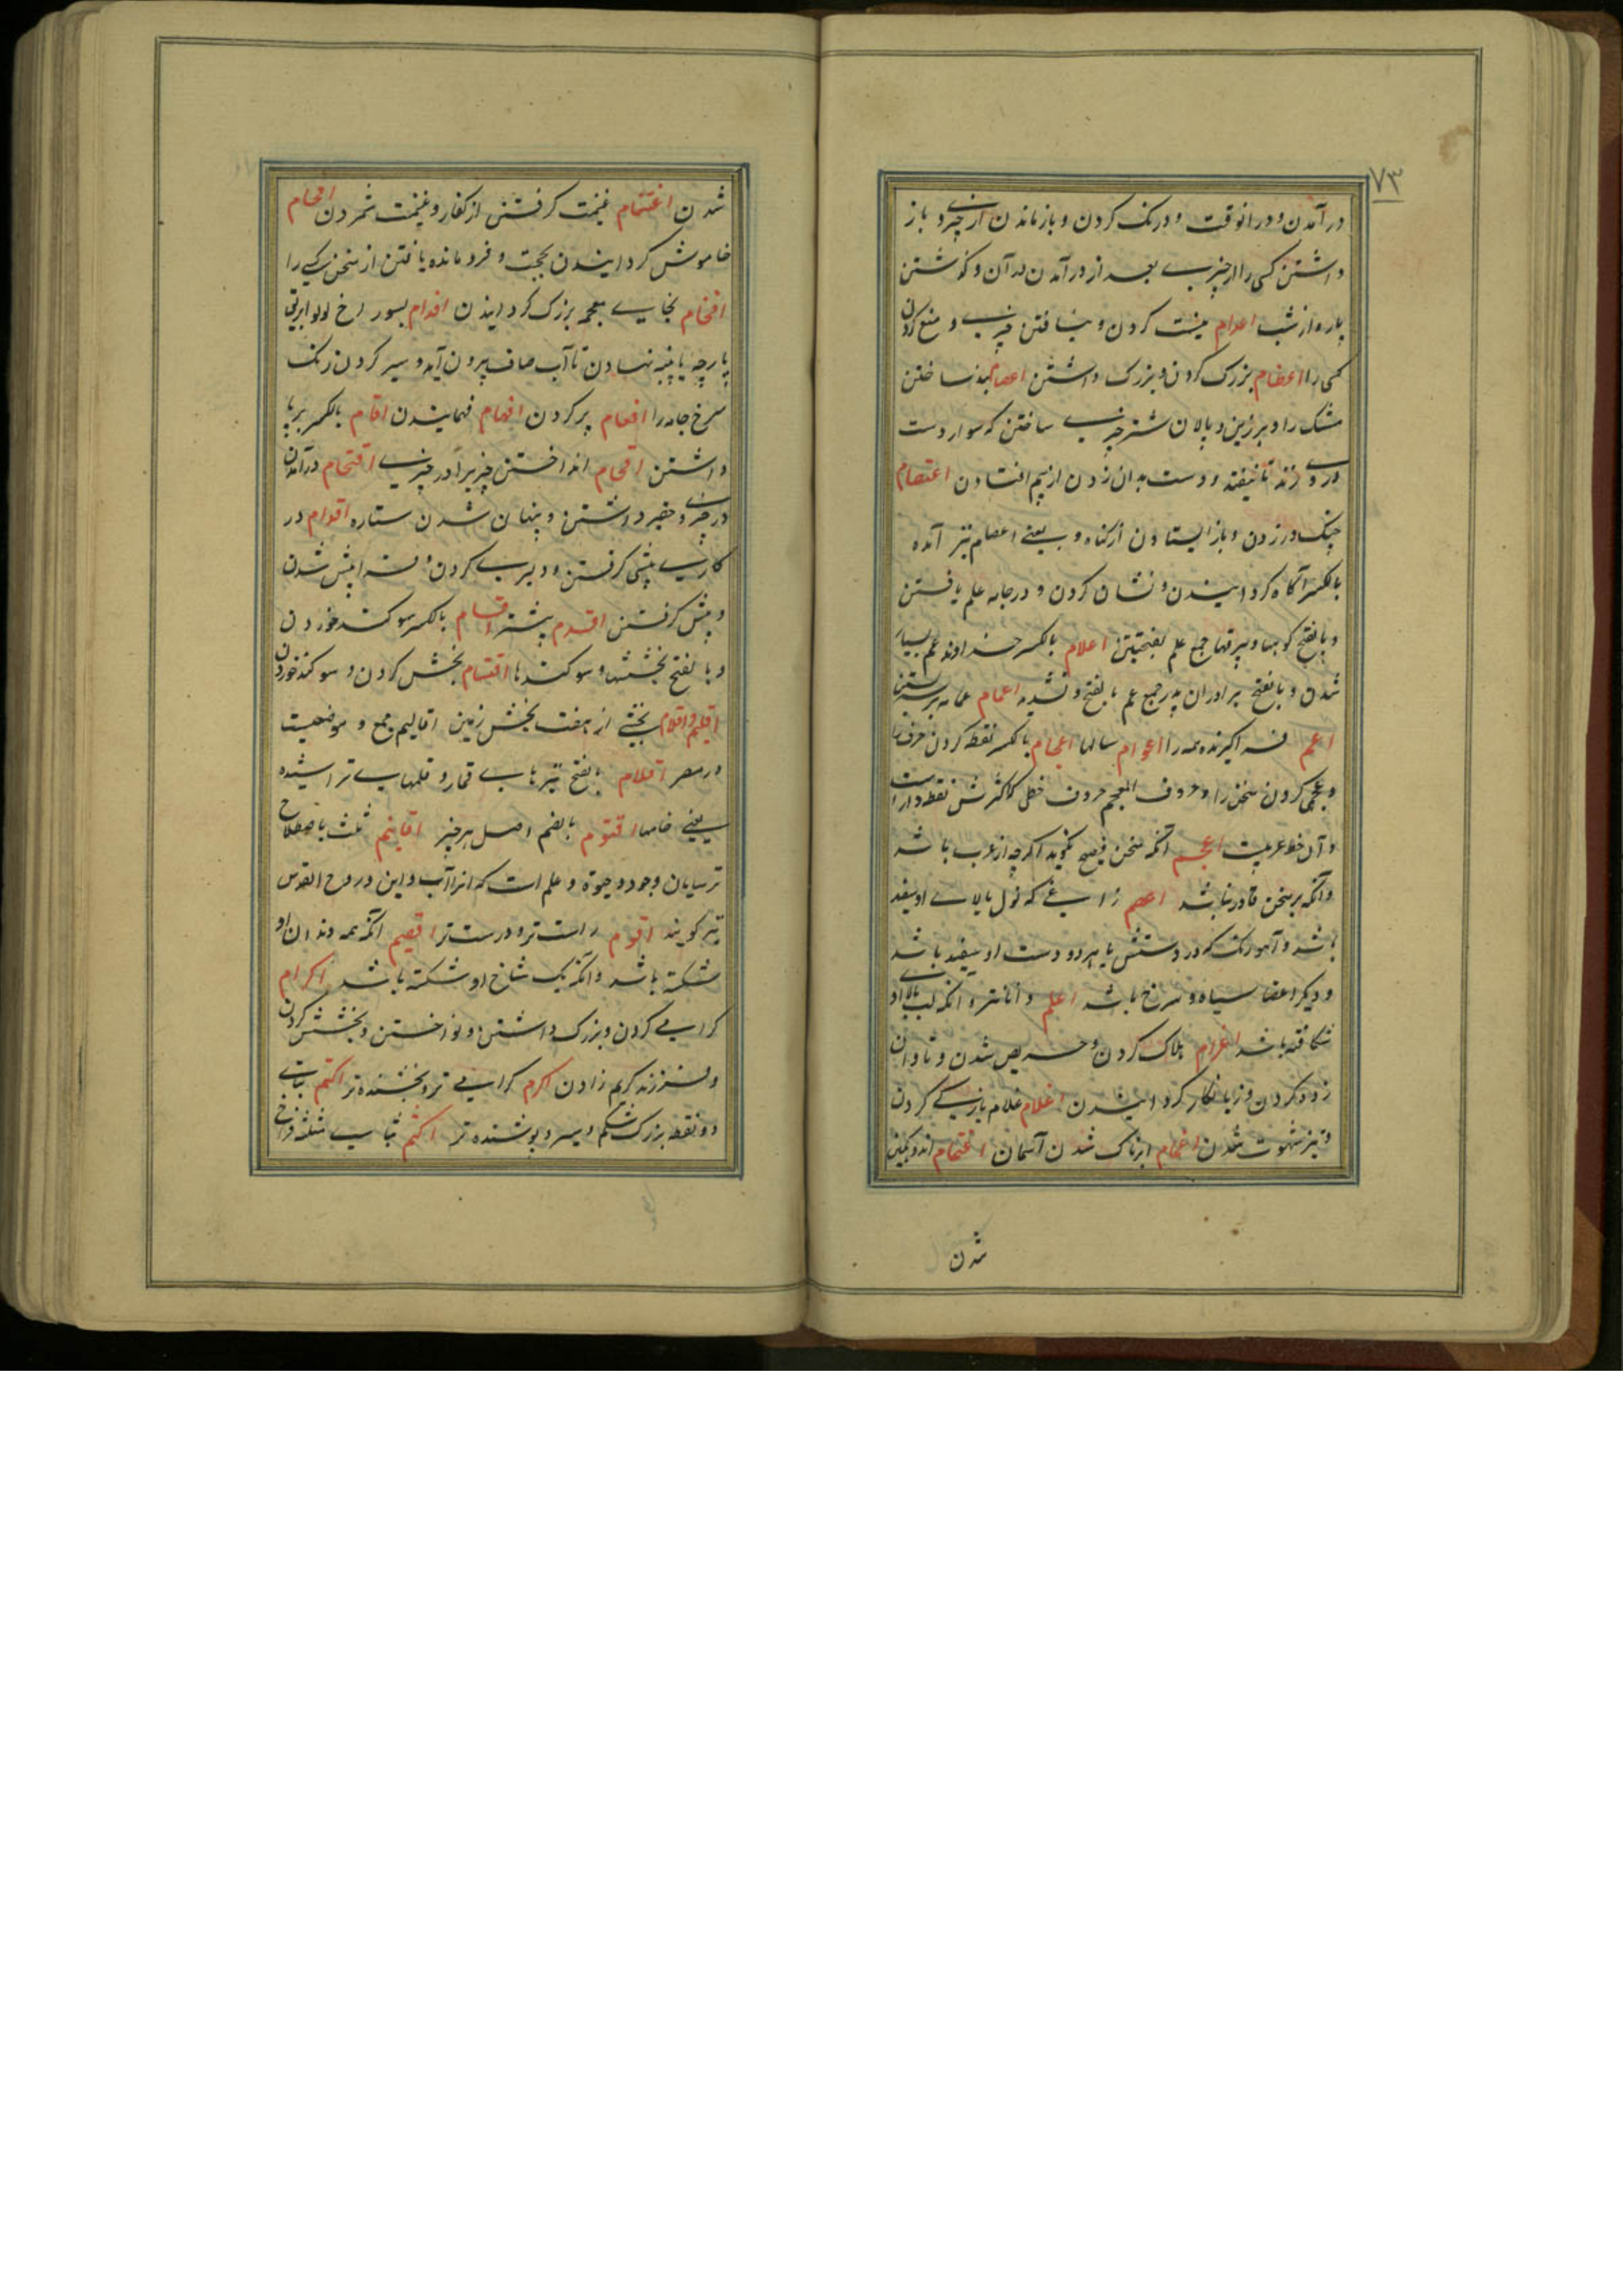 ۷۳
در آمدن و در انوقت و درنک کردن و باز ماندن از چیزے و باز
داشتن کسی را از چیزے بعد از در آمدن در آن و گذشتن
پاره از شب اعدام نیست کردن و نیافتن چیزے و منع کردن
کسی را اعظام بزرک کردن و بزرک داشتن اعصام بند ساختن
مشک را و بر زین و پالان شتر چیزے ساختن که سوار دست
در وے زند تا نیفتد و دست بدان زدن از بیم افتادن اعتصام
چنک در زدن و باز ایستادن از کناه و بمعنے اعصام نیز آمده
بالکسر آکاه کردانیدن و نشان کردن و در جامه علم یافتن
و بالفتح کوهها و بیرقها جمع علم بفتحتین اعلام بالکسر خداوند عم بسیار
شدن و بالفتح برادران پدر جمع عم بالفتح و تشدید اعمام عمامه بر سر بستن
اعم فراکیرنده همه را اعوام سالها اعجام بالکسر نقطه کردن حرف را
و عجمی کردن سخن را و حروف المعجم حروف خطی که اکثرش نقطه دار است
و آن خط عربیت اعجم آنکه سخن فصیح نکوید اکرچه از عرب باشد
و آنکه بر سخن قادر نباشد اعصم زاغے که نول بالاے او سفید
باشد و آهو رنک که در دستش یا هر دو دست او سفید باشد
و دیکر اعضا سیاه و سرخ باشد اعلم داناتر و آنکه لب بالاے او
شکافته باشد اغرام هلاک کردن و حریص شدن و تاوان
زده کردن و زیانکار کردانیدن اغلام غلام بازے کردن
و تیز شهوت شدن اغمام ابرناک شدن آسمان اغتمام اندوهکین
شدن
شدن اغتنام غنیمت کرفتن از کفار و غنیمت شمردن افحام
خاموش کردانیدن بحجت و فرو مانده یافتن از سخن کسے را
افخام بخاے معجمه بزرک کردانیدن افدام بسوراخ لوله ابریق
پارچه یا پنبه نهادن تا آب صاف بیرون آید و سیر کردن رنک
سرخ جامه را افعام پر کردن افهام فهمانیدن اقام بالکسر برپا
داشتن اقحام انداختن چیزیرا در چیزے اقتحام در آمدن
در چیزے و حقیر داشتن و پنهان شدن ستاره اقدام در
کارے پیشی کرفتن و دلیرے کردن و فرا پیش شدن
و پیش کرفتن اقدم پیشتر اقسام بالکسر سوکند خوردن
و بالفتح بخششها و سوکندها اقتسام بخش کردن و سوکند خوردن
اقلیم و اقلام بخشے از هفت بخش زمین اقالیم جمع و موضعیست
در مصر اقلام بالفتح تیرهاے قمار و قلمهاے تراشیده
یعنے خامها اقنوم بالضم اصل هر چیز اقانیم ثلث باصطلاح
ترسایان وجود و حیوة و علم است که انرا آب و ابن و روح القدس
نیز کویند اقوم راست تر و درست تر اقصم آنکه همه دندان او
شکسته باشد و آنکه یک شاخ او شکسته باشد اکرام
کرامے کردن و بزرک داشتن و نواختن و بخشش کردن
و فرزند کریم زادن اکرم کرامے تر و بخشنده تر اکتم بتاے
دو نقطه بزرک شکم و سیر و پوشنده تر اکثم بثاے مثلثه فراخ